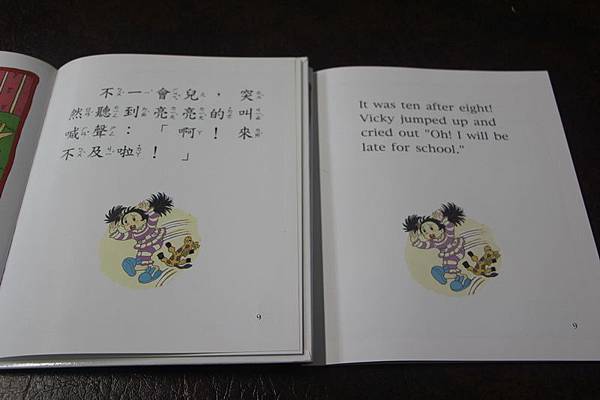 不一會兒，突
然聽到亮亮的叫
喊聲：「啊！來
不及啦！」
9
It was ten after eight!
Vicky jumped up and
cried out "Oh! I will be
late for school."
9